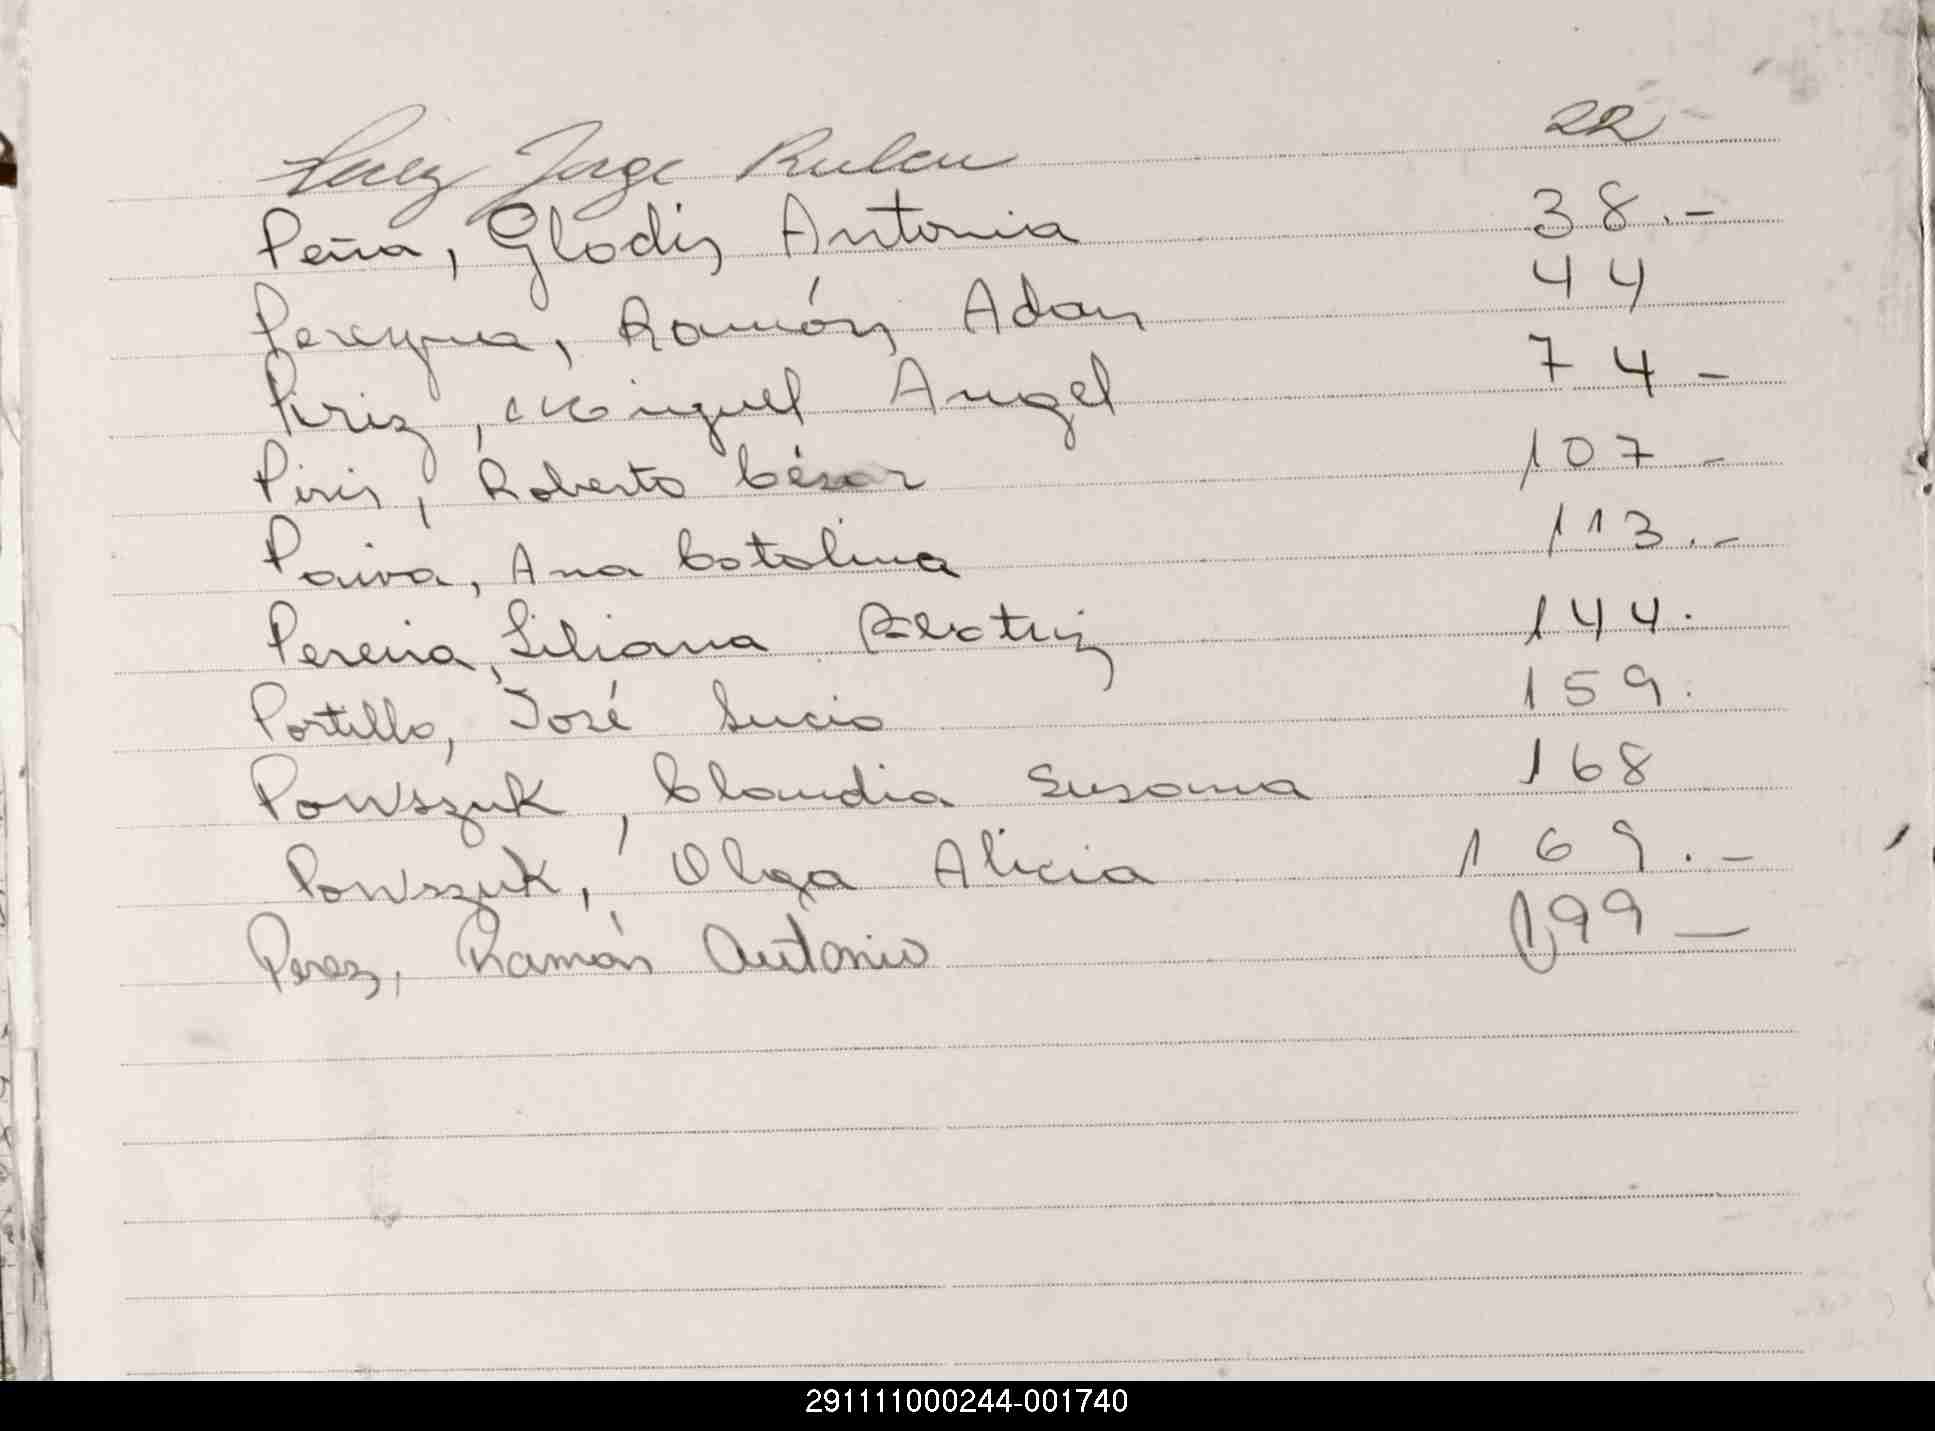 Perez Jorge Ruben 22
Peña, Glodis Antonia 38.-
Pereyra, Ramón Adan 44
Piriz, Miguel Angel 74 -
Piris, Roberto César 107 -
Paiva, Ana Catalina 113.-
Pereira, Liliana Beatriz 144.
Portillo, José Lucio 159.
Powszuk, Claudia Susana 168
Powszuk, Olga Alicia 169.-
Perez, Ramón Antonio 199 -
291111000244-001740